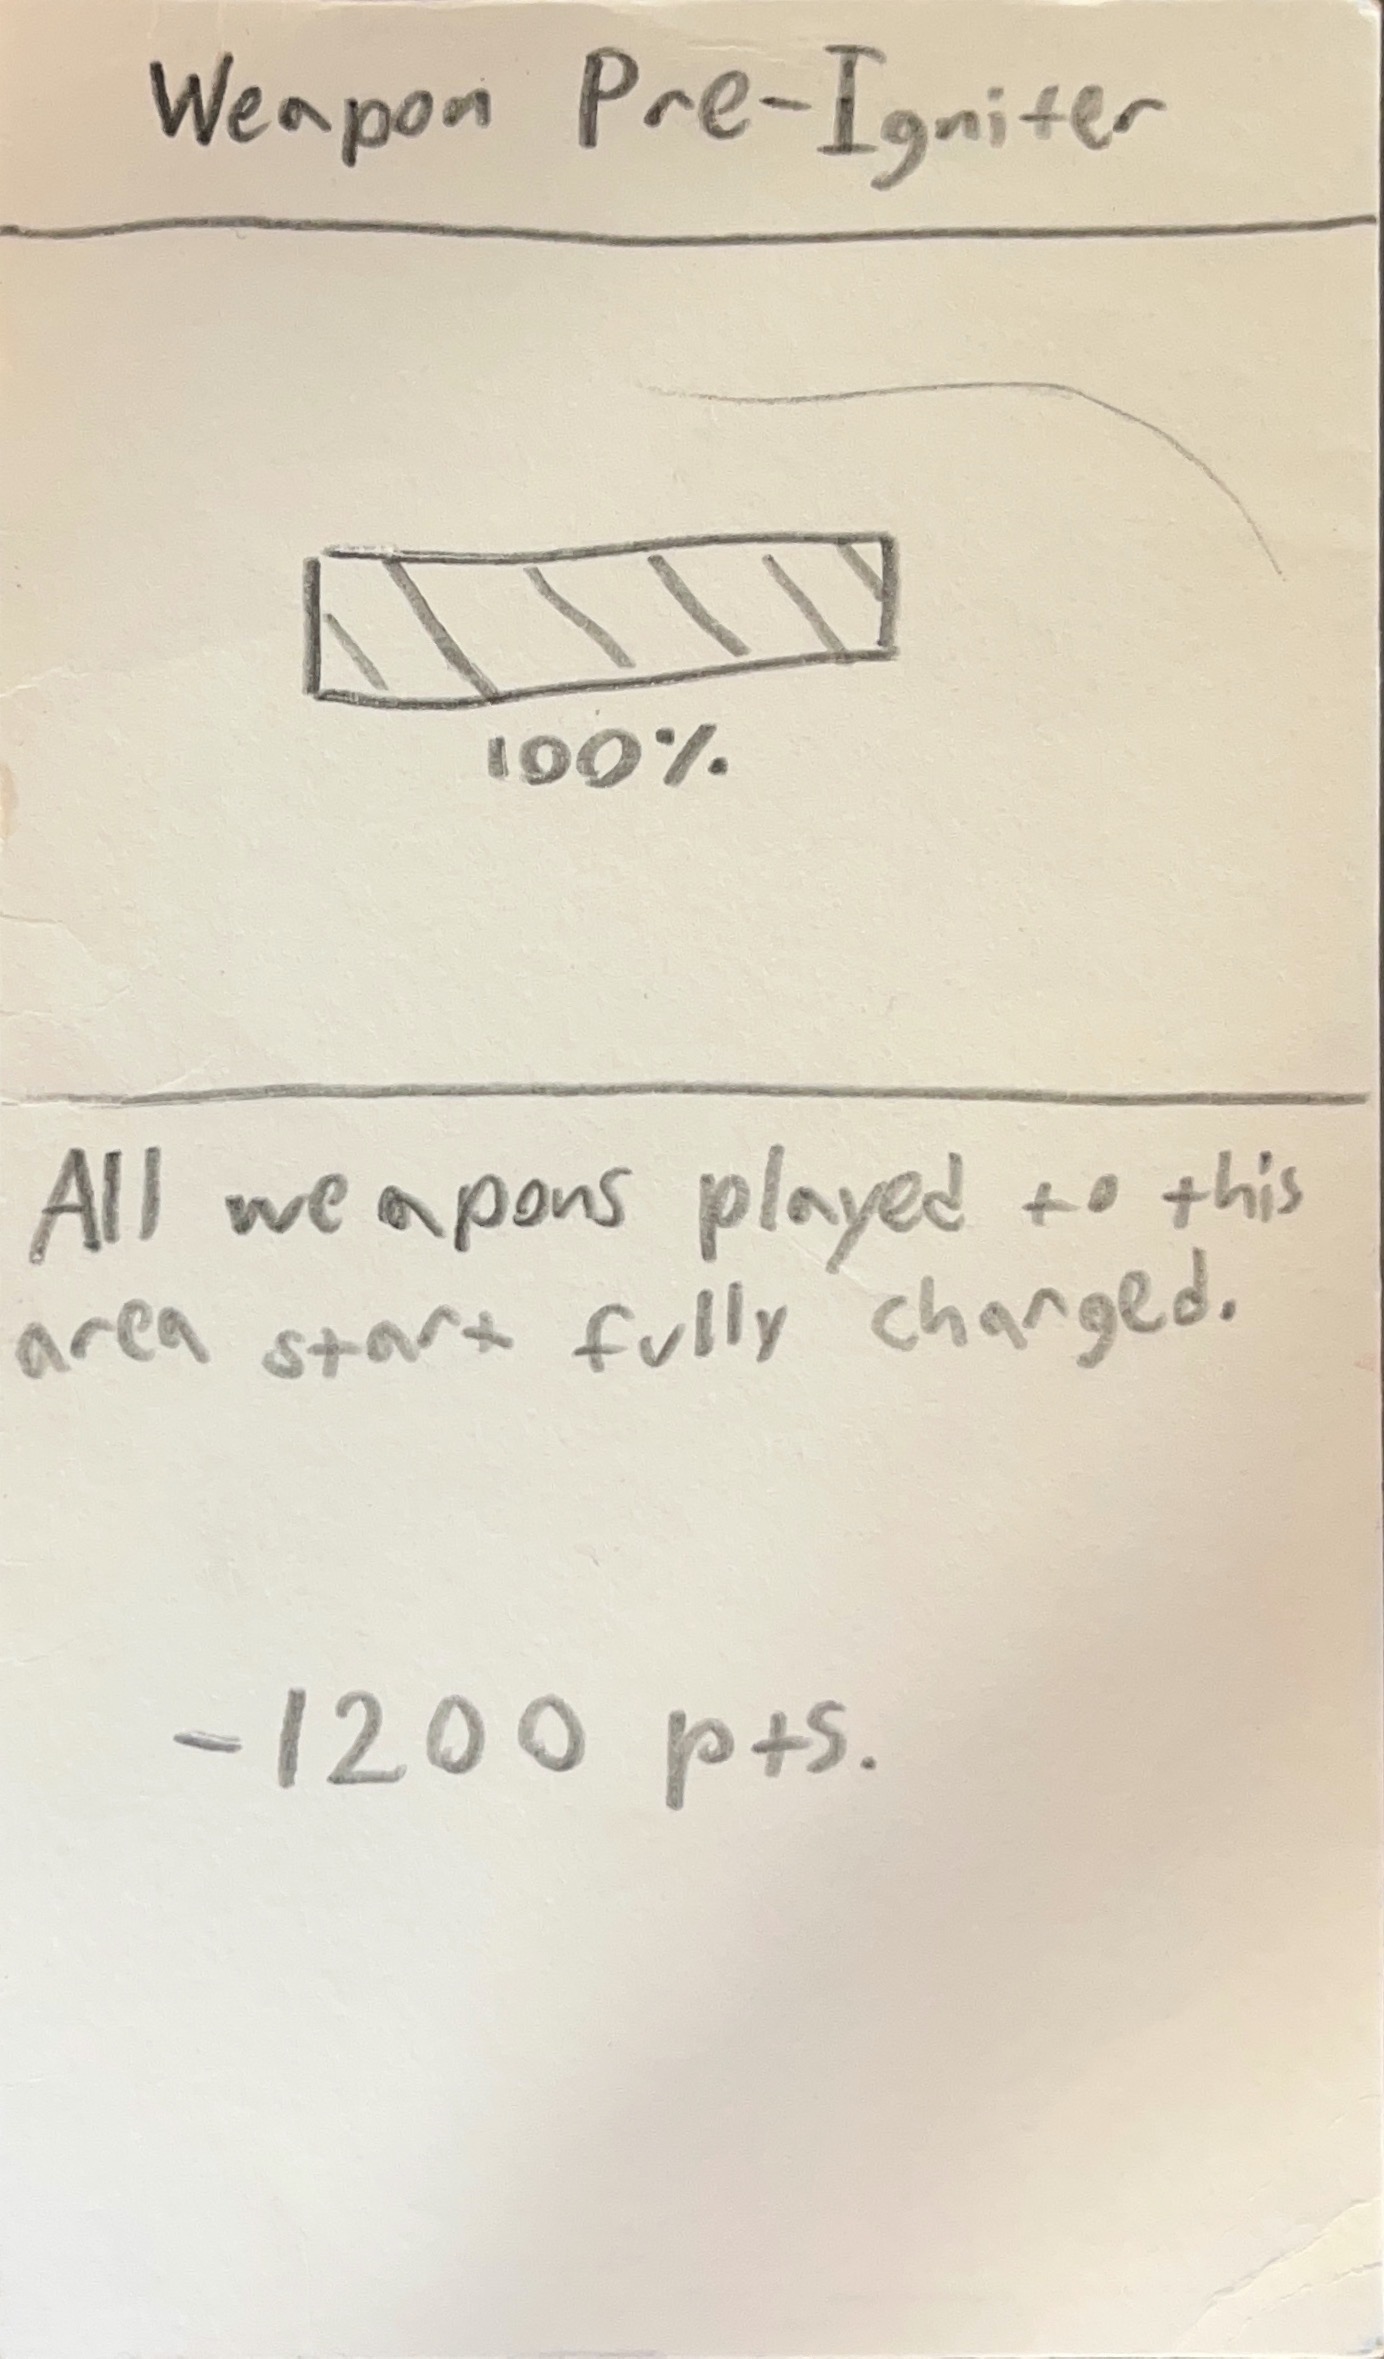 Weapon Pre-Igniter
100%
All weapons played to this
area start fully charged.
-1200 pts.